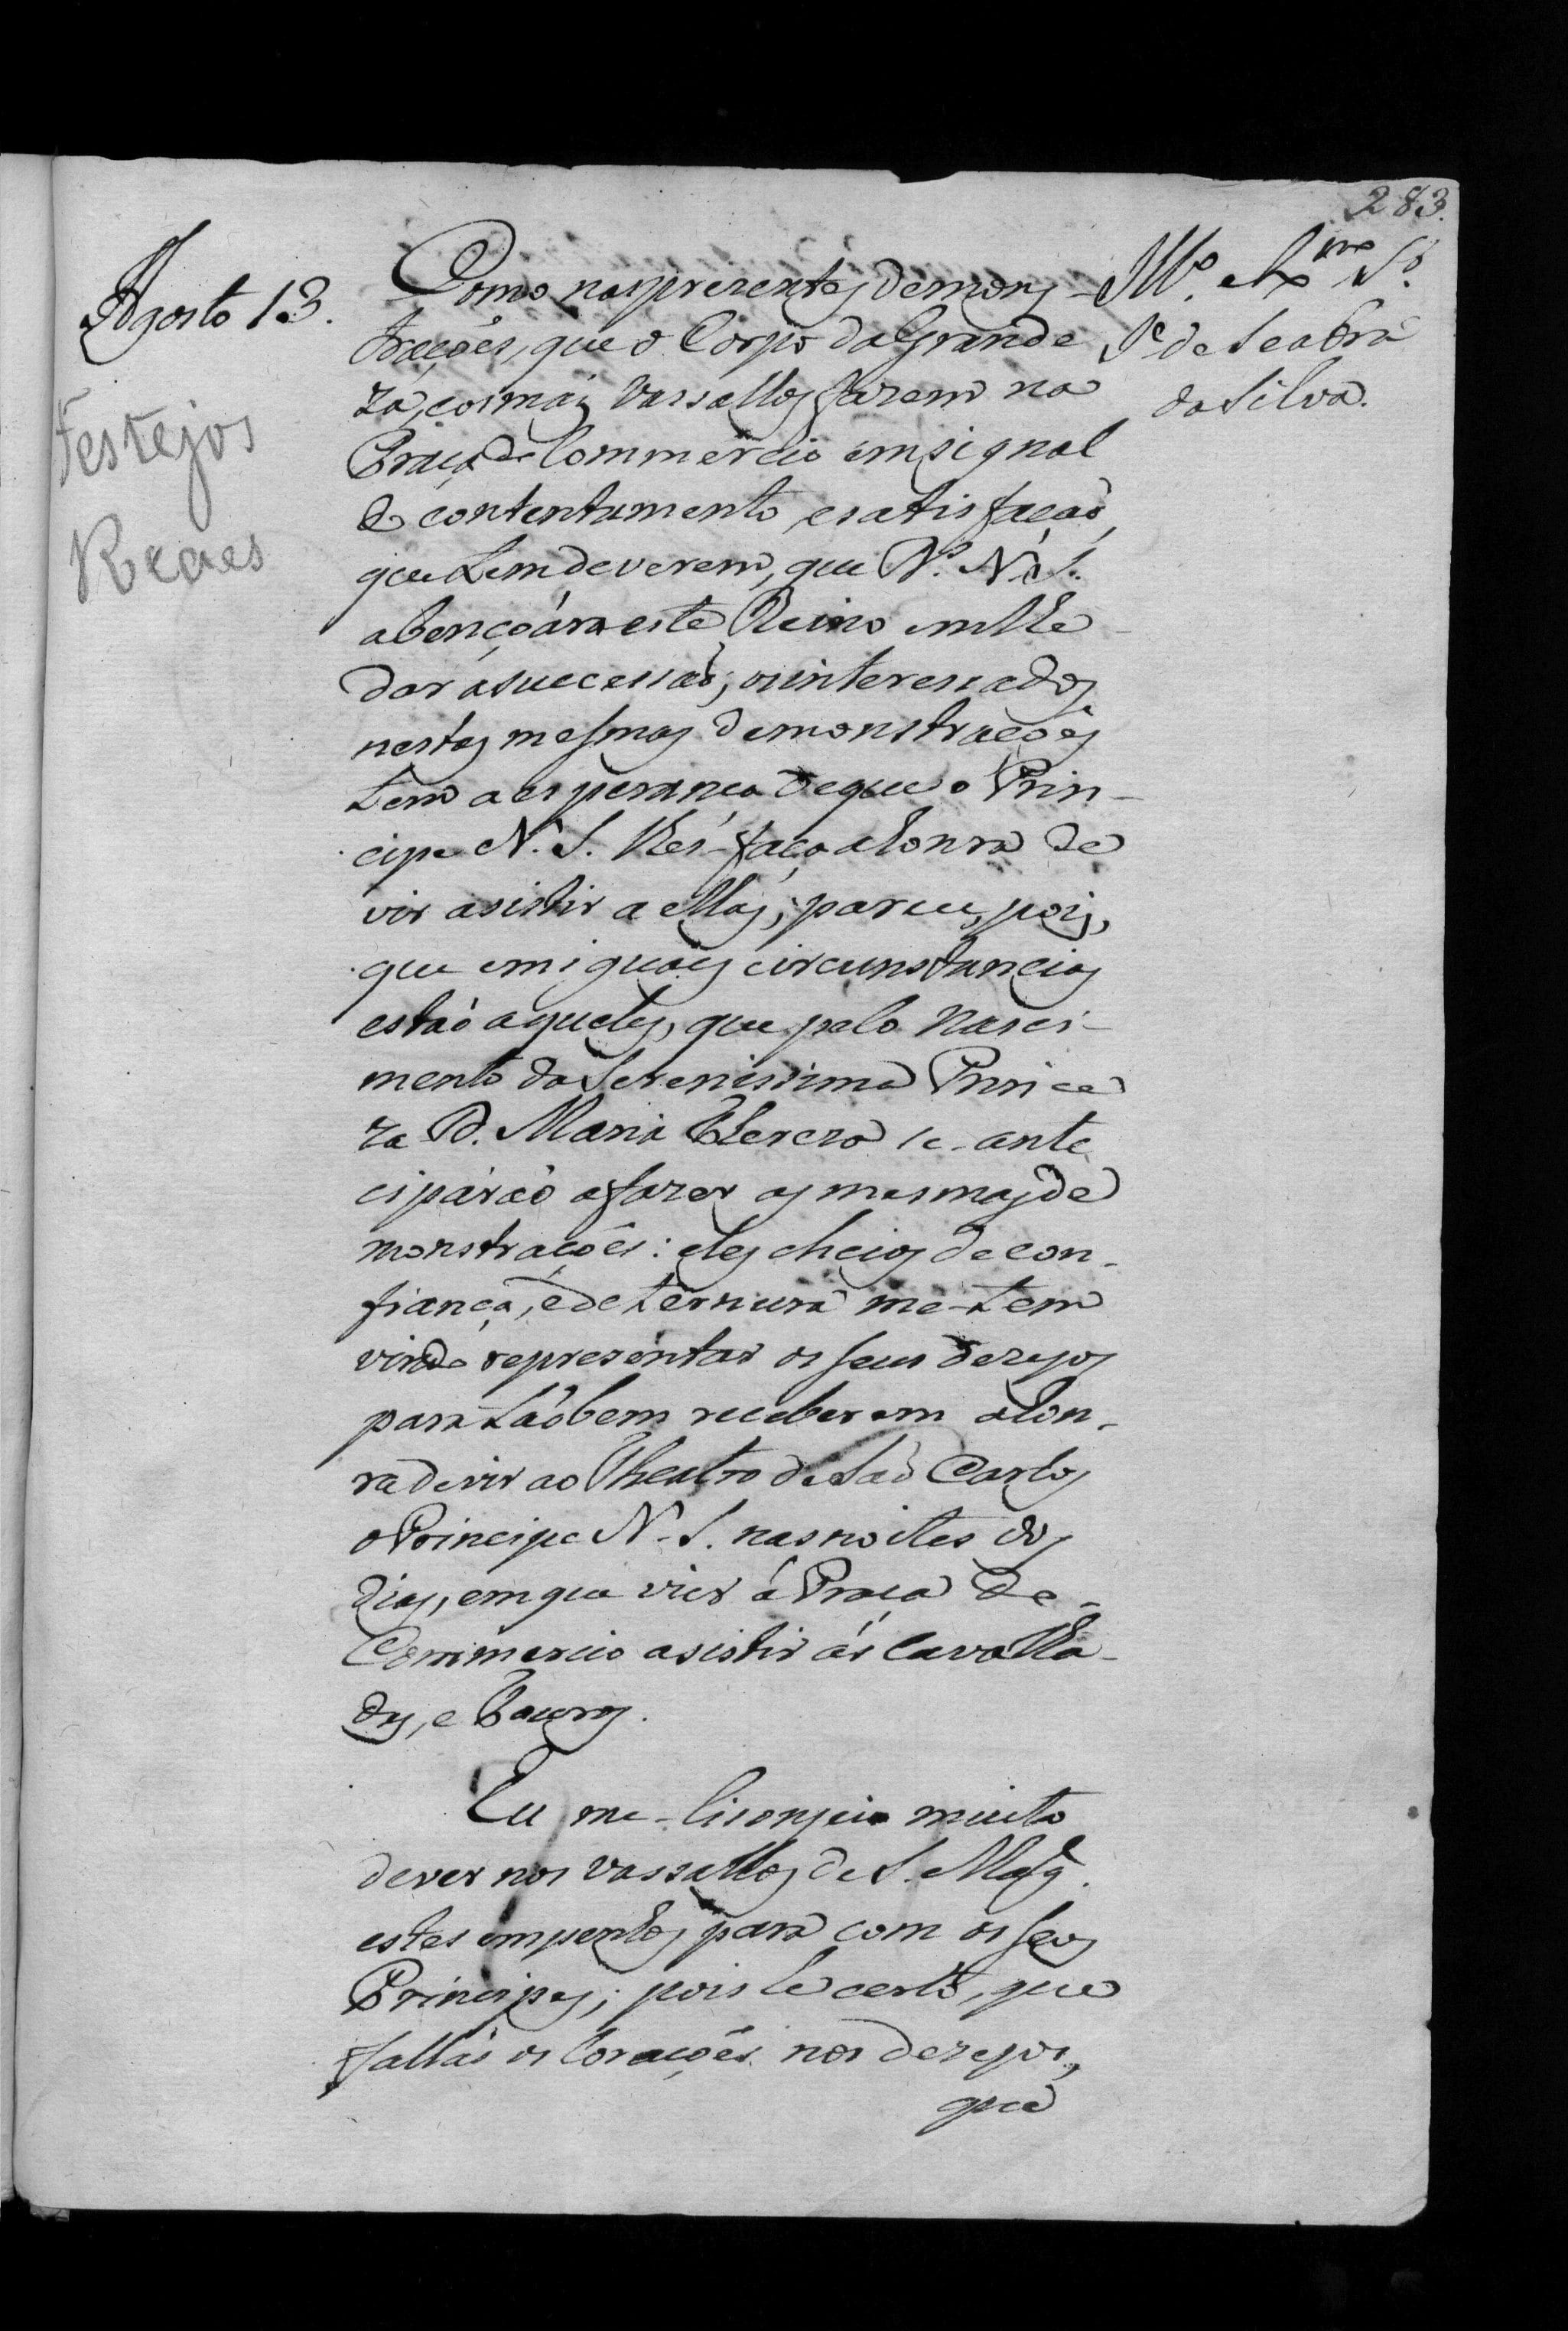 283.
Agosto 13.
Festejos
Reaes
Illº. e Exmº Sr.
Je. de Seabra
da Silva.
Como nas presentes demons-
trações, que o Corpo da Grande
za, e os mais Vassallos fazem na
Praça do Commercio em signal
do contentamento, e satisfação,
que tem de verem, que N. S.
abençoára este Reino em lhe
dar a successaõ, os interessados
nestas mesmas demonstraçoēs
tem a esperança de que o Prin-
cipe N. S. lhes-faça a honra de
vir asistir a ellas; parece, pois,
que em iguaes circunstancias
estaõ aqueles, que pelo Nasci-
mento da Serenissima Prince
za D. Maria Thereza se-ante
cipáraõ a fazer as mesmas de
monstrações: eles cheios de con-
fiança, e de ternura me-tem
vindo representar os seus dezejos
para taõbem receberem a hon-
ra de vir ao Theatro de Saõ Carlos
o Principe N. S. nas noites dos
dias, em que vier á Praça do
Commercio asistir ás Cavalha-
das, e Touros.
Eu me-lisonjeio muito
de ver nos vassallos de S. Mag.
estes empenhos para com os seos
Principes; pois he certo, que
fallaõ os Coraçoēs nos dezejos,
que